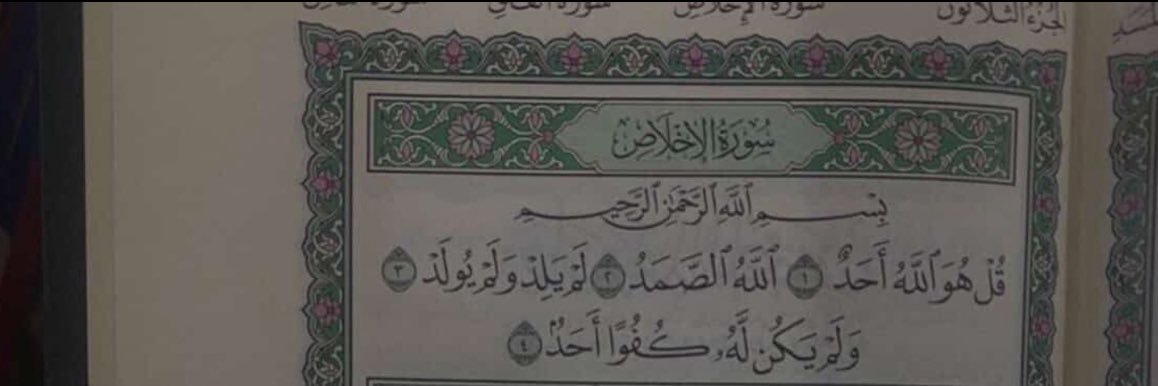 الجزء الثلاثون سورة الإخلاص سورة الفلق
سُورَةُ الإِخْلَاصِ
بِسْمِ ٱللَّهِ ٱلرَّحْمَٰنِ ٱلرَّحِيمِ
قُلْ هُوَ ٱللَّهُ أَحَدٌ ١ ٱللَّهُ ٱلصَّمَدُ ٢ لَمْ يَلِدْ وَلَمْ يُولَدْ ٣
وَلَمْ يَكُن لَّهُۥ كُفُوًا أَحَدٌۢ ٤